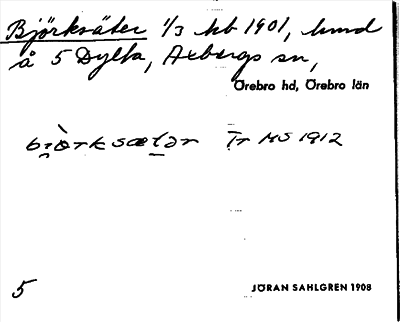 Björksäter 1/3 hb 1901, lund
å 5 Dylta, Axbergs sn,
Örebro hd, Örebro län
bjòrksætər Tr MS 1912
5
JÖRAN SAHLGREN 1908